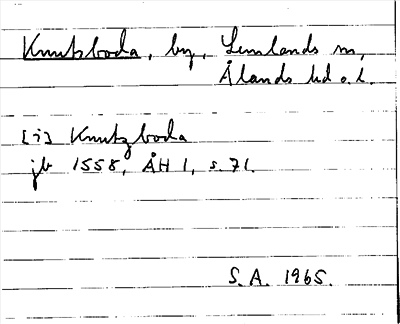 Knutsboda, by, Lemlands sn,
Ålands hd o. l.
[i] Knutzboda
jb 1558, ÅH 1, s. 71.
S. A. 1965.